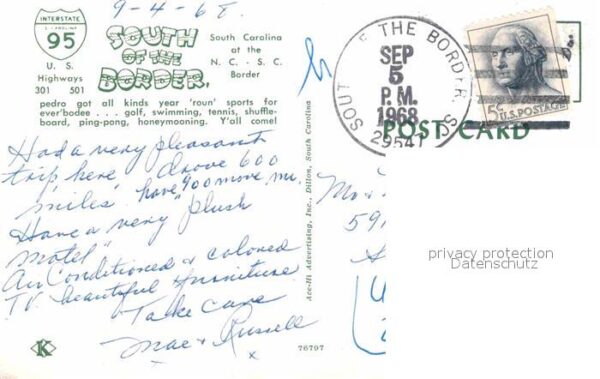 9-4-68.
INTERSTATE
S. CAROLINA
95
U. S.
Highways
301 501
SOUTH
OF THE
BORDER.
South Carolina
at the
N. C. - S. C.
Border
pedro got all kinds year 'roun' sports for
ever'bodee . . . golf, swimming, tennis, shuffle-
board, ping-pong, honeymooning. Y'all come!
Had a very pleasant
trip here, drove 600
miles, have 900 more mi
Have a very "plush
motel"
Air Conditioned & colored
TV. beautiful furniture
Take care
Mae & Russell
x
K
76797
Ace-Hi Advertising, Inc., Dillon, South Carolina
SOUTH OF THE BORDER, S
SEP
5
P.M.
1968
29547
5¢ U.S. POSTAGE
POST CARD
59
privacy protection
Datenschutz